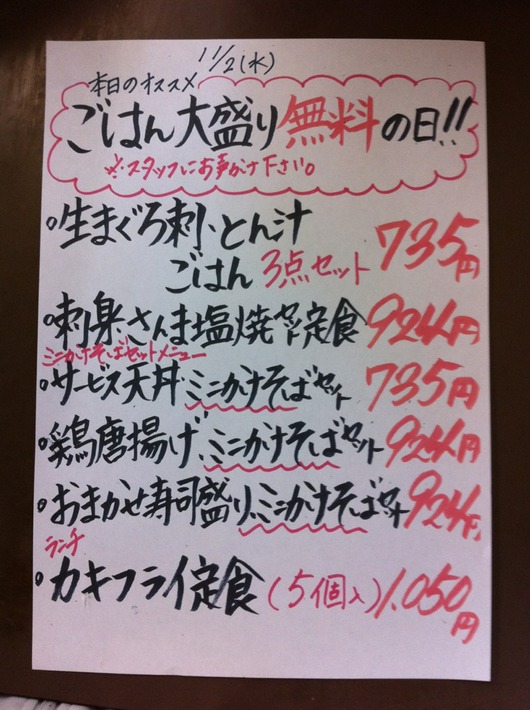 11/2(水)
本日のオススメ
ごはん大盛り無料の日!!
※スタッフにお声がけ下さい。
生まぐろ刺、とん汁
ごはん 3点セット 735円
刺身、さんま塩焼セット定食 924円
ミニかけそばセットメニュー
サービス天丼、ミニかけそばセット 735円
鶏唐揚げ、ミニかけそばセット 924円
おまかせ寿司盛り、ミニかけそばセット 924円
ランチ
カキフライ定食(5個入) 1.050円